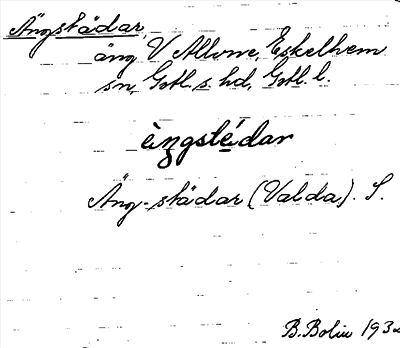 Ängstädar,
äng V Allvne, Eskelhem
sn, Gotl. s. hd, Gotl. l.
èngstédar
Äng-städar (Valda). S.
B. Bolin 193